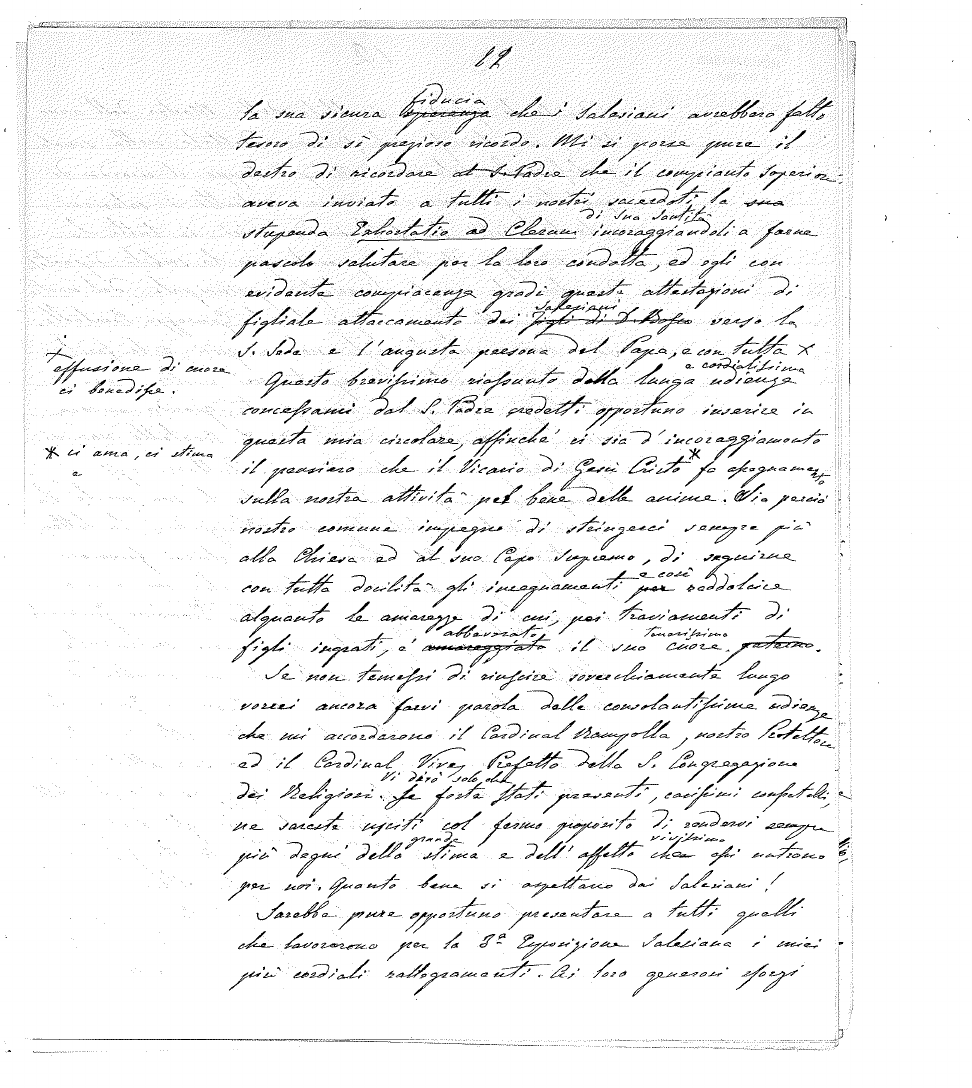 12
fiducia
la sua sicura speranza che i Salesiani avrebbero fatto
tesoro di sì prezioso ricordo. Mi si porse pure il
destro di ricordare al S. Padre che il compianto Superiore
aveva inviato a tutti i nostri sacerdoti la sua
di Sua Santità
stupenda Exhortatio ad Clerum incoraggiandoli a farne
pascolo salutare per la loro condotta, ed egli con
evidente compiacenza gradì queste attestazioni di
salesiani
figliale attaccamento dei figli di D. Bosco verso la
S. Sede e l'augusta persona del Papa, e con tutta X
X
effusione di cuore
ci benedisse.
e cordialissima
Questo brevissimo riassunto della lunga udienza
concessami dal S. Padre credetti opportuno inserire in
questa mia circolare, affinché ci sia d'incoraggiamento
ci ama, ci stima
e
il pensiero che il Vicario di Gesù Cristo fa assegnamento
sulla nostra attività pel bene delle anime. Sia perciò
nostro comune impegno di stringerci sempre più
alla Chiesa ed al suo Capo Supremo, di seguirne
e così
con tutta docilità gli insegnamenti per raddolcire
alquanto le amarezze di cui, pei traviamenti di
abbeverato
tenerissimo
figli ingrati, è amareggiato il suo cuore paterno.
Se non temessi di riuscire soverchiamente lungo
vorrei ancora farvi parola delle consolantissime udienze
che mi accordarono il Cardinal Rampolla, nostro Protettore
ed il Cardinal Vives Prefetto della S. Congregazione
Vi dirò solo che
dei Religiosi. Se foste stati presenti, carissimi confratelli,
ne sareste usciti col fermo proposito di rendervi sempre
grande
vivissimo
più degni della stima e dell'affetto che essi nutrono
per noi. Quanto bene si aspettano dai Salesiani!
Sarebbe pure opportuno presentare a tutti quelli
che lavorarono per la 3ª Esposizione Salesiana i miei
più cordiali rallegramenti. Ai loro generosi sforzi